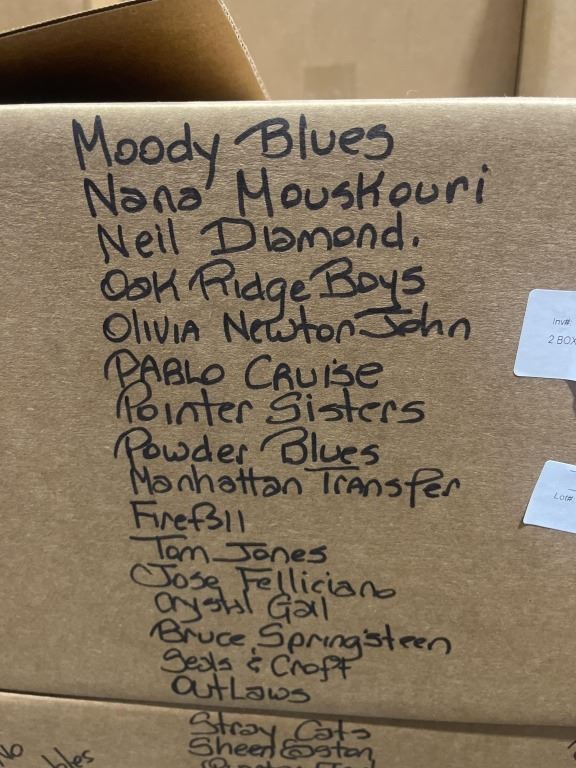 Moody Blues
Nana Mouskouri
Neil Diamond.
Oak Ridge Boys
Olivia Newton John
PABLO CRUISE
Pointer Sisters
Powder Blues
Manhattan Transfer
Firefall
Tom Jones
Jose Felliciano
Crystal Gail
Bruce Springsteen
Seals & Croft
Outlaws
Stray Cats
Sheen Easton
Inv#:
2 BOX
Lot#: